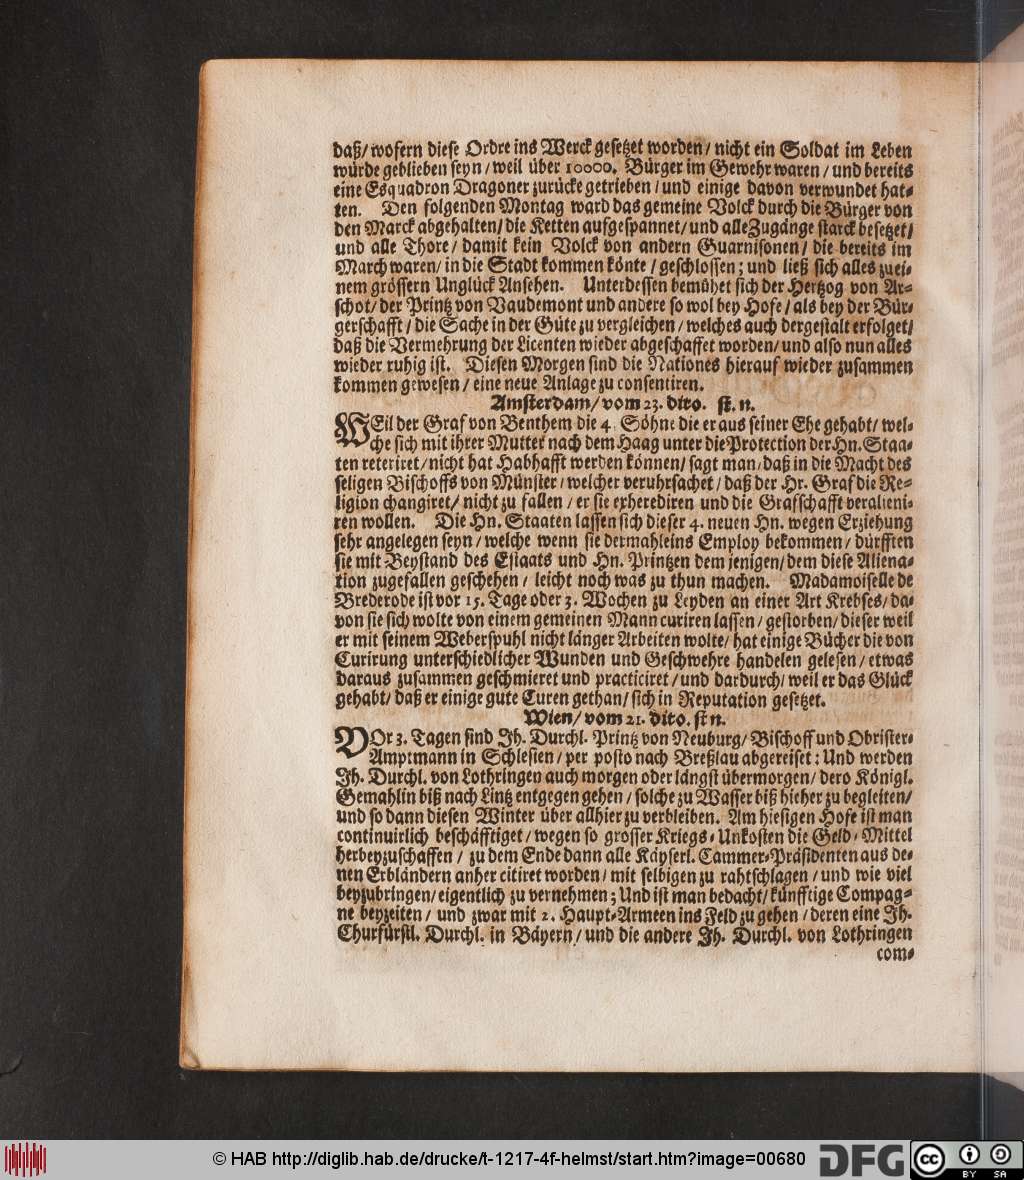 daß/ wofern diese Ordre ins Werck gesetzet worden/ nicht ein Soldat im Leben
würde geblieben seyn/ weil über 10000. Bürger im Gewehr waren/ und bereits
eine Esquadron Dragoner zurücke getrieben/ und einige davon verwundet hat-
ten. Den folgenden Montag ward das gemeine Volck durch die Bürger von
den Marck abgehalten/ die Ketten aufgespannet/ und alle Zugänge starck besetzet/
und alle Thore/ damit kein Volck von andern Guarnisonen/ die bereits im
March waren/ in die Stadt kommen könte/ geschlossen; und ließ sich alles zu ei-
nem grössern Unglück Ansehen. Unterdessen bemühet sich der Hertzog von Ar-
schot/ der Printz von Vaudemont und andere so wol bey Hofe/ als bey der Bür-
gerschafft/ die Sache in der Güte zu vergleichen/ welches auch dergestalt erfolget/
daß die Vermehrung der Licenten wieder abgeschaffet worden/ und also nun alles
wieder ruhig ist. Diesen Morgen sind die Nationes hierauf wieder zusammen
kommen gewesen/ eine neue Anlage zu consentiren.
Amsterdam/ vom 23. dito. st. n.
WEil der Graf von Benthem die 4. Söhne die er aus seiner Ehe gehabt/ wel-
che sich mit ihrer Mutter nach dem Haag unter die Protection der Hn. Staa-
ten reteriret/ nicht hat Habhafft werden können/ sagt man/ daß in die Macht des
seligen Bischoffs von Münster/ welcher veruhrsachet/ daß der Hr. Graf die Re-
ligion changiret/ nicht zu fallen/ er sie exherediren und die Grafschafft veralieni-
ren wollen. Die Hn. Staaten lassen sich dieser 4. neuen Hn. wegen Erziehung
sehr angelegen seyn/ welche wenn sie dermahleins Employ bekommen/ dürfften
sie mit Beystand des Estaats und Hn. Printzen dem jenigen/ dem diese Aliena-
tion zugefallen geschehen/ leicht noch was zu thun machen. Madamoiselle de
Brederode ist vor 15. Tage oder 3. Wochen zu Leyden an einer Art Krebses/ da-
von sie sich wolte von einem gemeinen Mann curiren lassen/ gestorben/ dieser weil
er mit seinem Weberspuhl nicht länger Arbeiten wolte/ hat einige Bücher die von
Curirung unterschiedlicher Wunden und Geschwehre handelen gelesen/ etwas
daraus zusammen geschmieret und practiciret/ und dardurch/ weil er das Glück
gehabt/ daß er einige gute Curen gethan/ sich in Reputation gesetzet.
Wien/ vom 21. dito. st n.
VOr 3. Tagen sind Jh. Durchl. Printz von Neuburg/ Bischoff und Obrister-
Amptmann in Schlesien/ per posto nach Breßlau abgereiset: Und werden
Jh. Durchl. von Lothringen auch morgen oder längst übermorgen/ dero Königl.
Gemahlin biß nach Lintz entgegen gehen/ solche zu Wasser biß hieher zu begleiten/
und so dann diesen Winter über allhier zu verbleiben. Am hiesigen Hofe ist man
continuirlich beschäfftiget/ wegen so grosser Kriegs-Unkosten die Geld-Mittel
herbeyzuschaffen/ zu dem Ende dann alle Käyserl. Cammer-Präsidenten aus de-
nen Erbländern anher citiret worden/ mit selbigen zu rahtschlagen/ und wie viel
beyzubringen/ eigentlich zu vernehmen; Und ist man bedacht/ künfftige Compag-
ne beyzeiten/ und zwar mit 2. Haupt-Armeen ins Feld zu gehen/ deren eine Jh.
Churfürstl. Durchl. in Bäyern/ und die andere Jh. Durchl. von Lothringen
com-
© HAB http://diglib.hab.de/drucke/t-1217-4f-helmst/start.htm?image=00680
DFG
cc BY SA